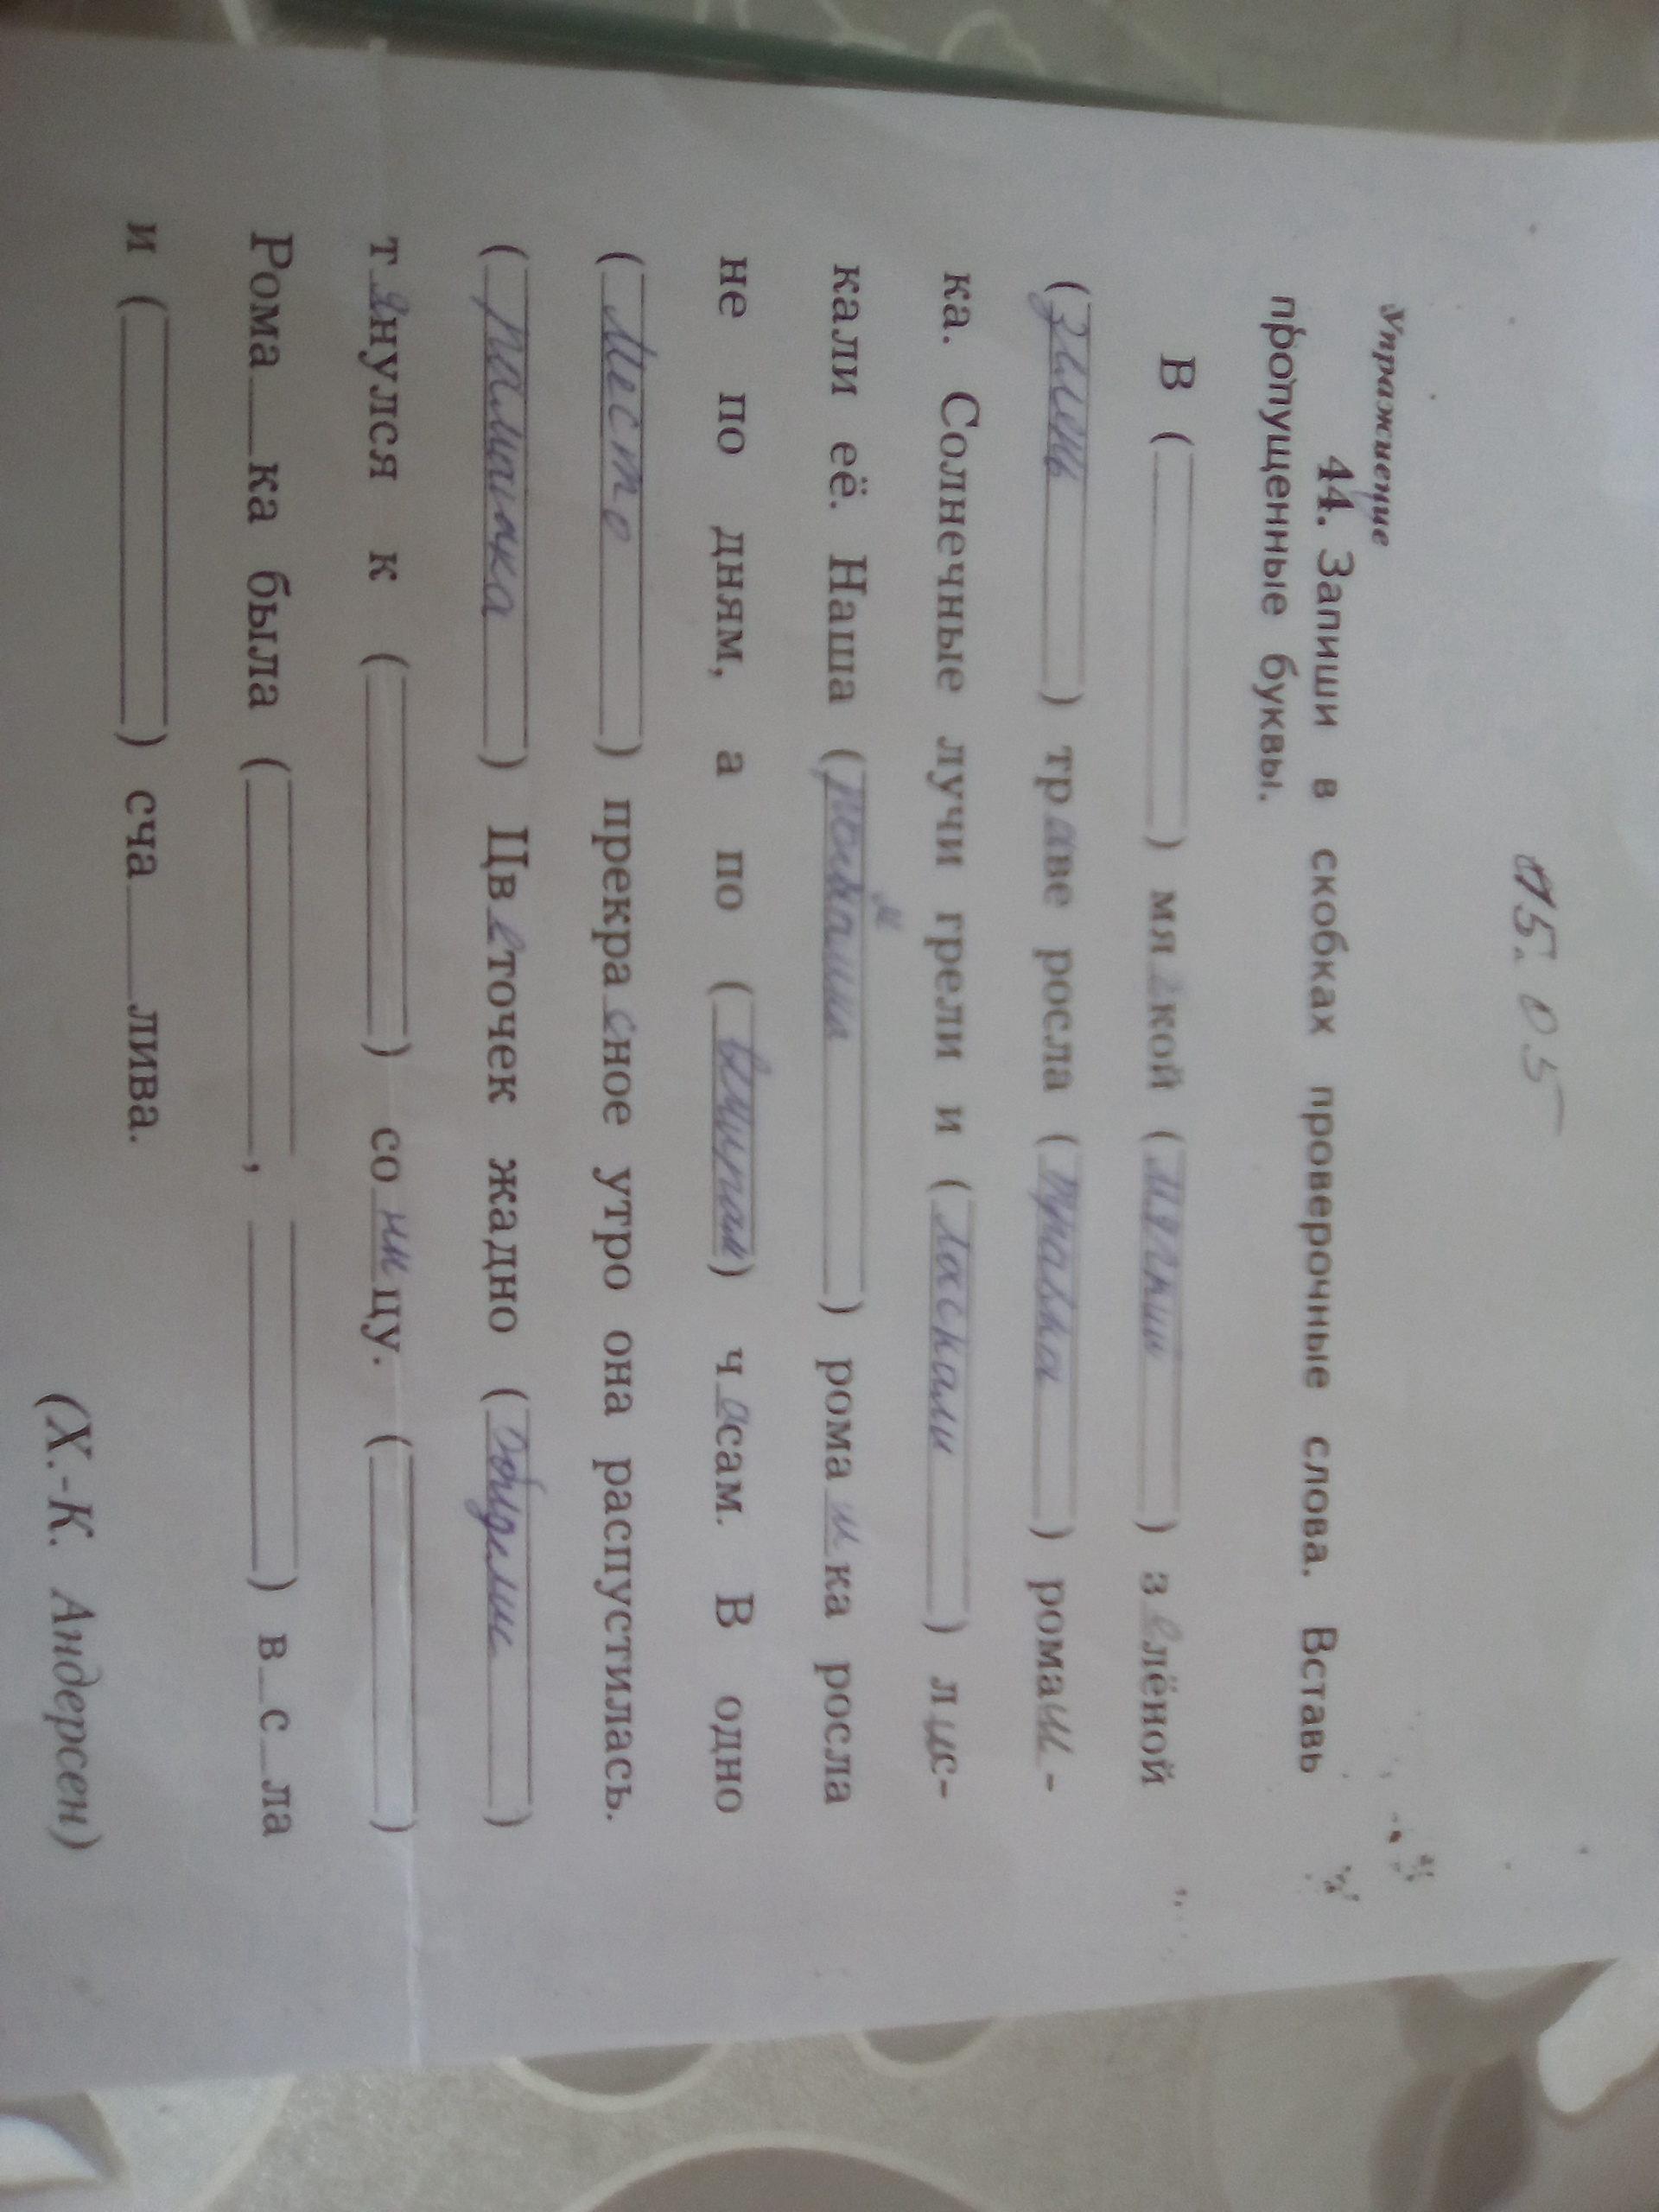 15. 05
Упражнение
44. Запиши в скобках проверочные слова. Вставь
пропущенные буквы.
В (____) мягкой (мягкий) зелёной
(____) траве росла (травка) ромаш-
ка. Солнечные лучи грели и (ласкали) лис-
кали её. Наша (____) ромашка росла
не по дням, а по (____) часам. В одно
(место) прекрасное утро она распустилась.
(ромашка) Цветочек жадно (____)
тянулся к (____) со нцу. (____)
Рома__ка была (____, ____) в_с_ла
и (____) сча__лива.
(Х.-К. Андерсен)